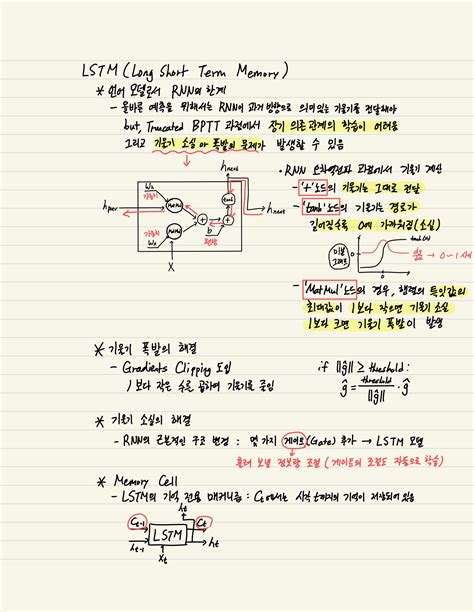 LSTM (Long Short Term Memory)
* 언어 모델로서 RNN의 한계
- 올바른 예측을 위해서는 RNN이 과거 방향으로 의미있는 기울기를 전달해야
but, Truncated BPTT 과정에서 장기 의존 관계의 학습이 어려움
그리고 기울기 소실 or 폭발의 문제가 발생할 수 있음
hnext
Wh
기울기
hprev
MatMul
tanh
+
+
hnext
기울기
MatMul
b
Wx
편향
X
• RNN 오차역전파 과정에서 기울기 계산
- '+'노드의 기울기는 그대로 전달
- 'tanh'노드의 기울기는 경로가
길어질수록 0에 가까워짐(소실)
미분
그래프
tanh(x)
→ 0~1 사이
- 'MatMul'노드의 경우, 행렬의 특잇값의
최대값이 1보다 작으면 기울기 소실
1보다 크면 기울기 폭발이 발생
* 기울기 폭발의 해결
- Gradients Clipping 도입
1보다 작은 수를 곱하여 기울기를 줄임
if ||ĝ|| ≥ threshold:
ĝ = threshold / ||ĝ|| · ĝ
* 기울기 소실의 해결
- RNN의 근본적인 구조 변경 : 몇 가지 게이트(Gate) 추가 → LSTM 모델
흘려 보낼 정보량 조절 (게이트의 조절도 자동으로 학습)
* Memory Cell
- LSTM의 기억 전용 매커니즘 : Ct에서는 시각 t까지의 기억이 저장되어 있음
ht
Ct-1
Ct
LSTM
ht-1
ht
Xt